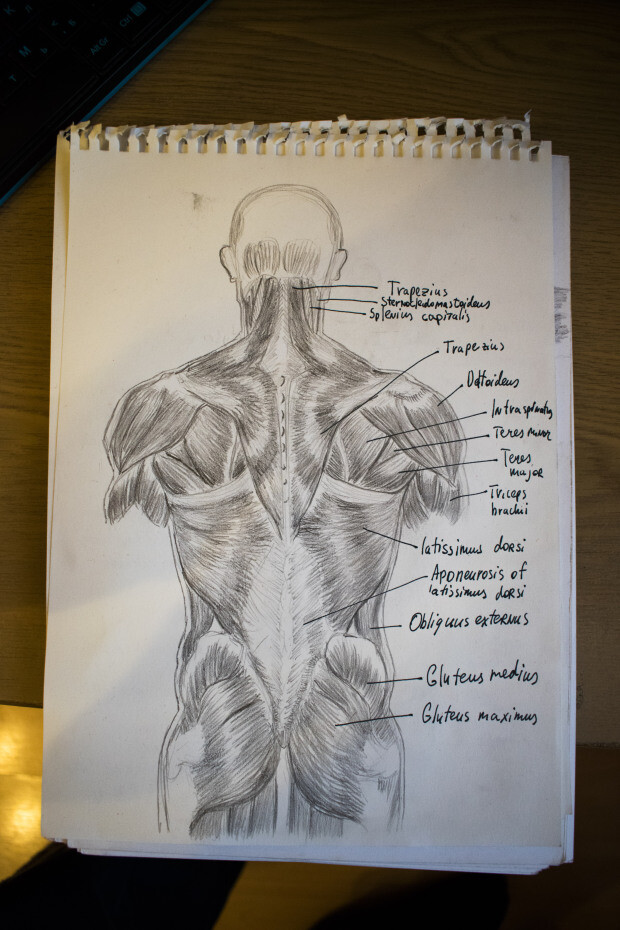 Trapezius
Sternocleidomastoideus
Splenius capitalis
Trapezius
Deltoideus
Intraspinatus
Teres minor
Teres
major
Triceps
brachii
latissimus dorsi
Aponeurosis of
latissimus dorsi
Obliquus externus
Gluteus medius
Gluteus maximus
Alt Gr
Ctrl